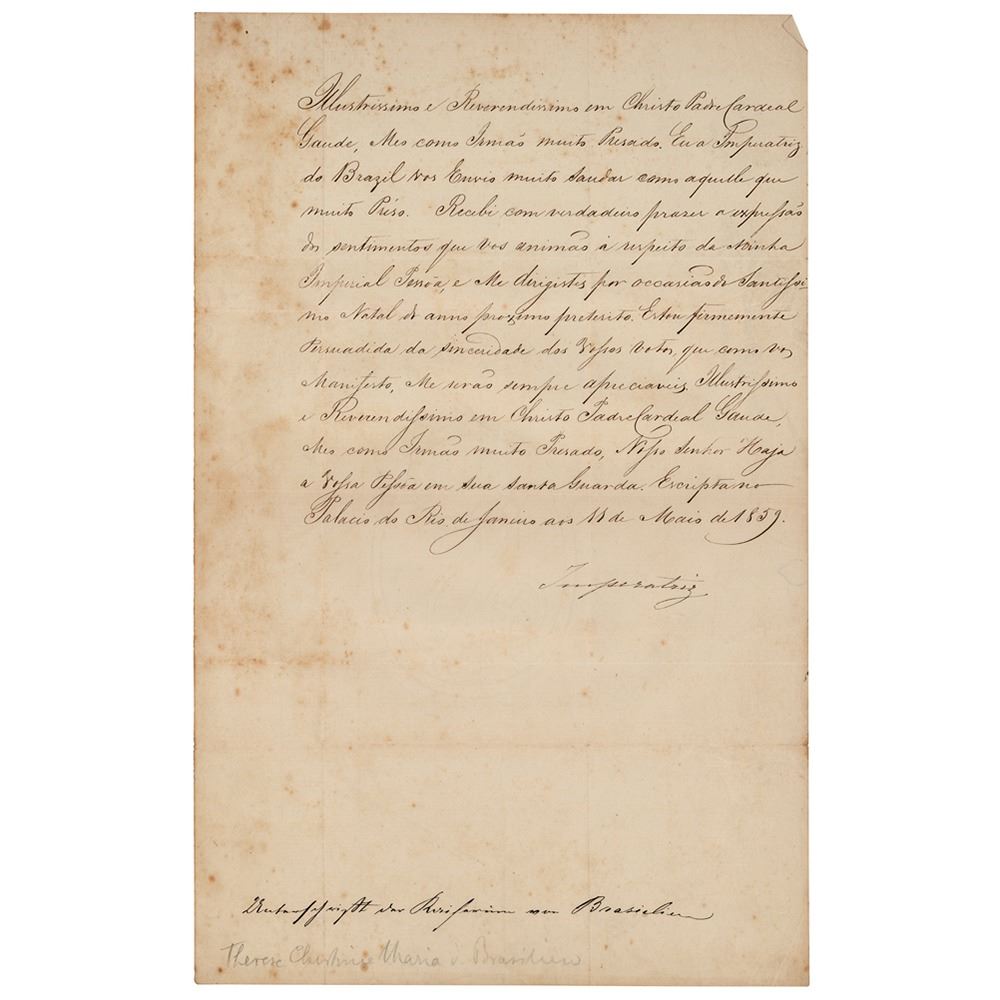 Illustrissimo e Reverendissimo em Christo Padre Cardeal
Gaude, Meo como Irmão muito Presado. Eu a Imperatriz
do Brazil vos Envio muito saudar como aquelle que
muito Préso. Recebi com verdadeiro prazer a expressão
dos sentimentos que vos animão à respeito da Minha
Imperial Pessôa, e Me dirigistes por occasião do Santissi-
mo Natal do anno proximo preterito. Estou firmemente
Persuadida da sinceridade dos Vossos votos, que como vos
Manifesto, Me serão sempre apreciaveis, Illustrissimo
e Reverendissimo em Christo Padre Cardeal Gaude,
Meo como Irmão muito Presado, Nosso Senhor Haja
a Vossa Pessôa em sua santa Guarda. Escripta no
Palacio do Rio de Janeiro aos de Maio de 1859.
Imperatriz
Unterschrift der Kaiserin von Brasilien
Therese Christine Maria v. Brasilien